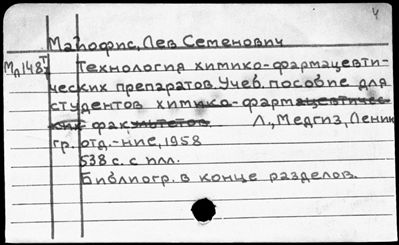 4
Магофис, Лев Семенович
Мл148 Т Технология химико-фармацевти-
ческих препаратов. Учеб. пособие для
студентов химико-фармацевтичес-
ких факультетов Л., Медгиз, Ленин
гр. отд.-ние, 1958
538 с. с илл.
Библиогр. в конце разделов.